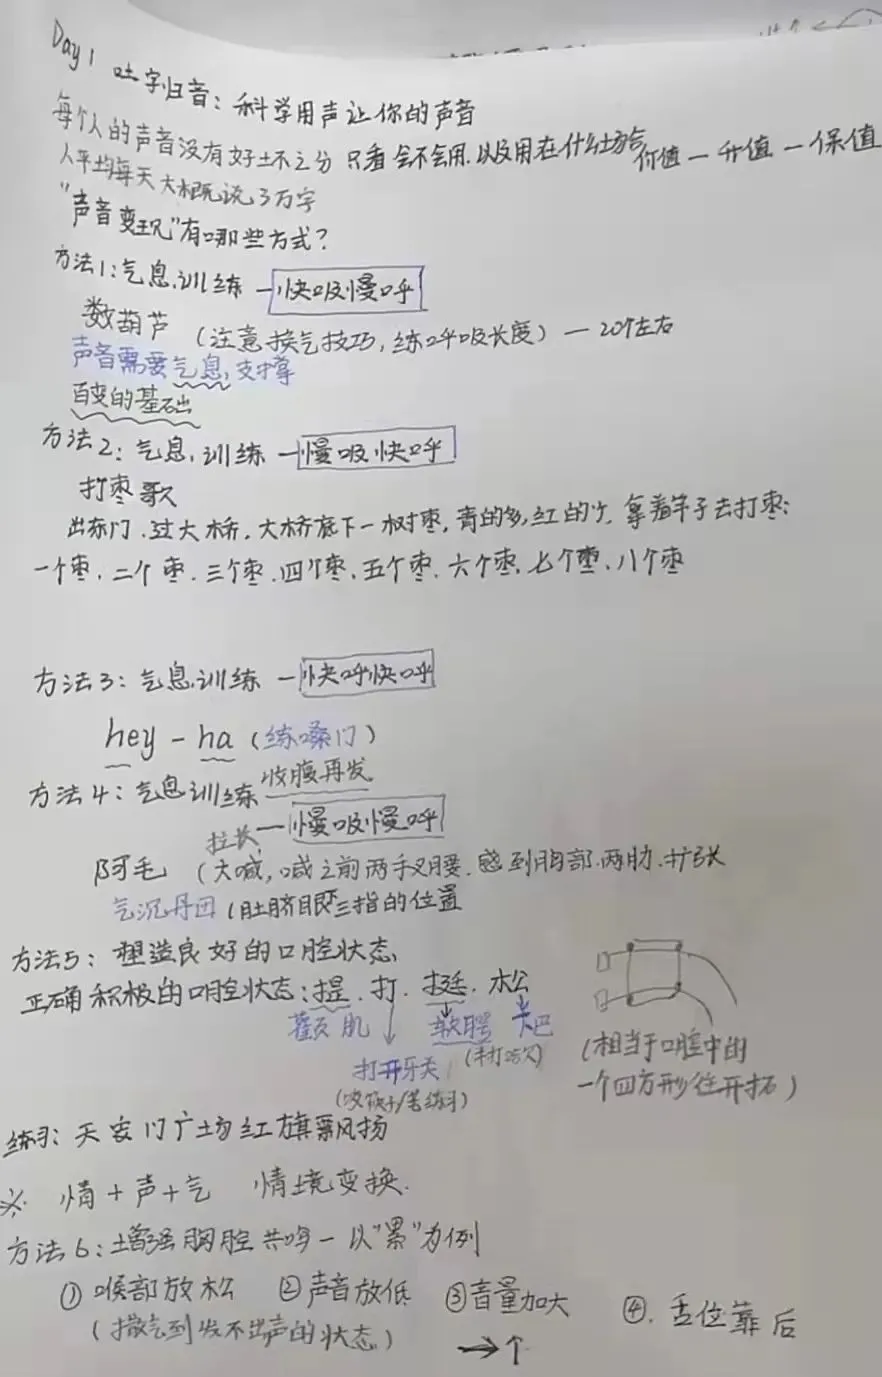 Day 1 吐字归音：科学用声让你的声音
价值一升值一保值
每个人的声音没有好坏之分 只看会不会用.以及用在什么场合
人平均每天大概说3万字
"声音变现"有哪些方式？
方法1：气息训练一快吸慢呼
数葫芦（注意换气技巧，练呼吸长度）一20个左右
声音需要气息支撑
百变的基础
方法2：气息训练一慢吸快呼
打枣歌
出东门.过大桥.大桥底下一树枣,青的多,红的少.拿着竿子去打枣：
一个枣.二个枣.三个枣.四个枣.五个枣.六个枣.七个枣.八个枣
方法3：气息训练一快呼快呼
hey - ha（练嗓门）
收腹再发
方法4：气息训练
拉长一慢吸慢呼
阿毛（大喊,喊之前两手叉腰.感到胸部.两肋.扩张
气沉丹田（肚脐眼下三指的位置
方法5：塑造良好的口腔状态
正确积极的口腔状态：提.打.挺.松
颧肌 软腭 下巴
打开牙关（半打哈欠）
（相当于口腔中的
一个四方形往开拓）
练习：天安门广场红旗飘扬
※ 情+声+气 情境变换.
方法6：增强胸腔共鸣一以"累"为例
①喉部放松 ②声音放低 ③音量加大 ④.舌位靠后
（撒气到发不出声的状态） →↑